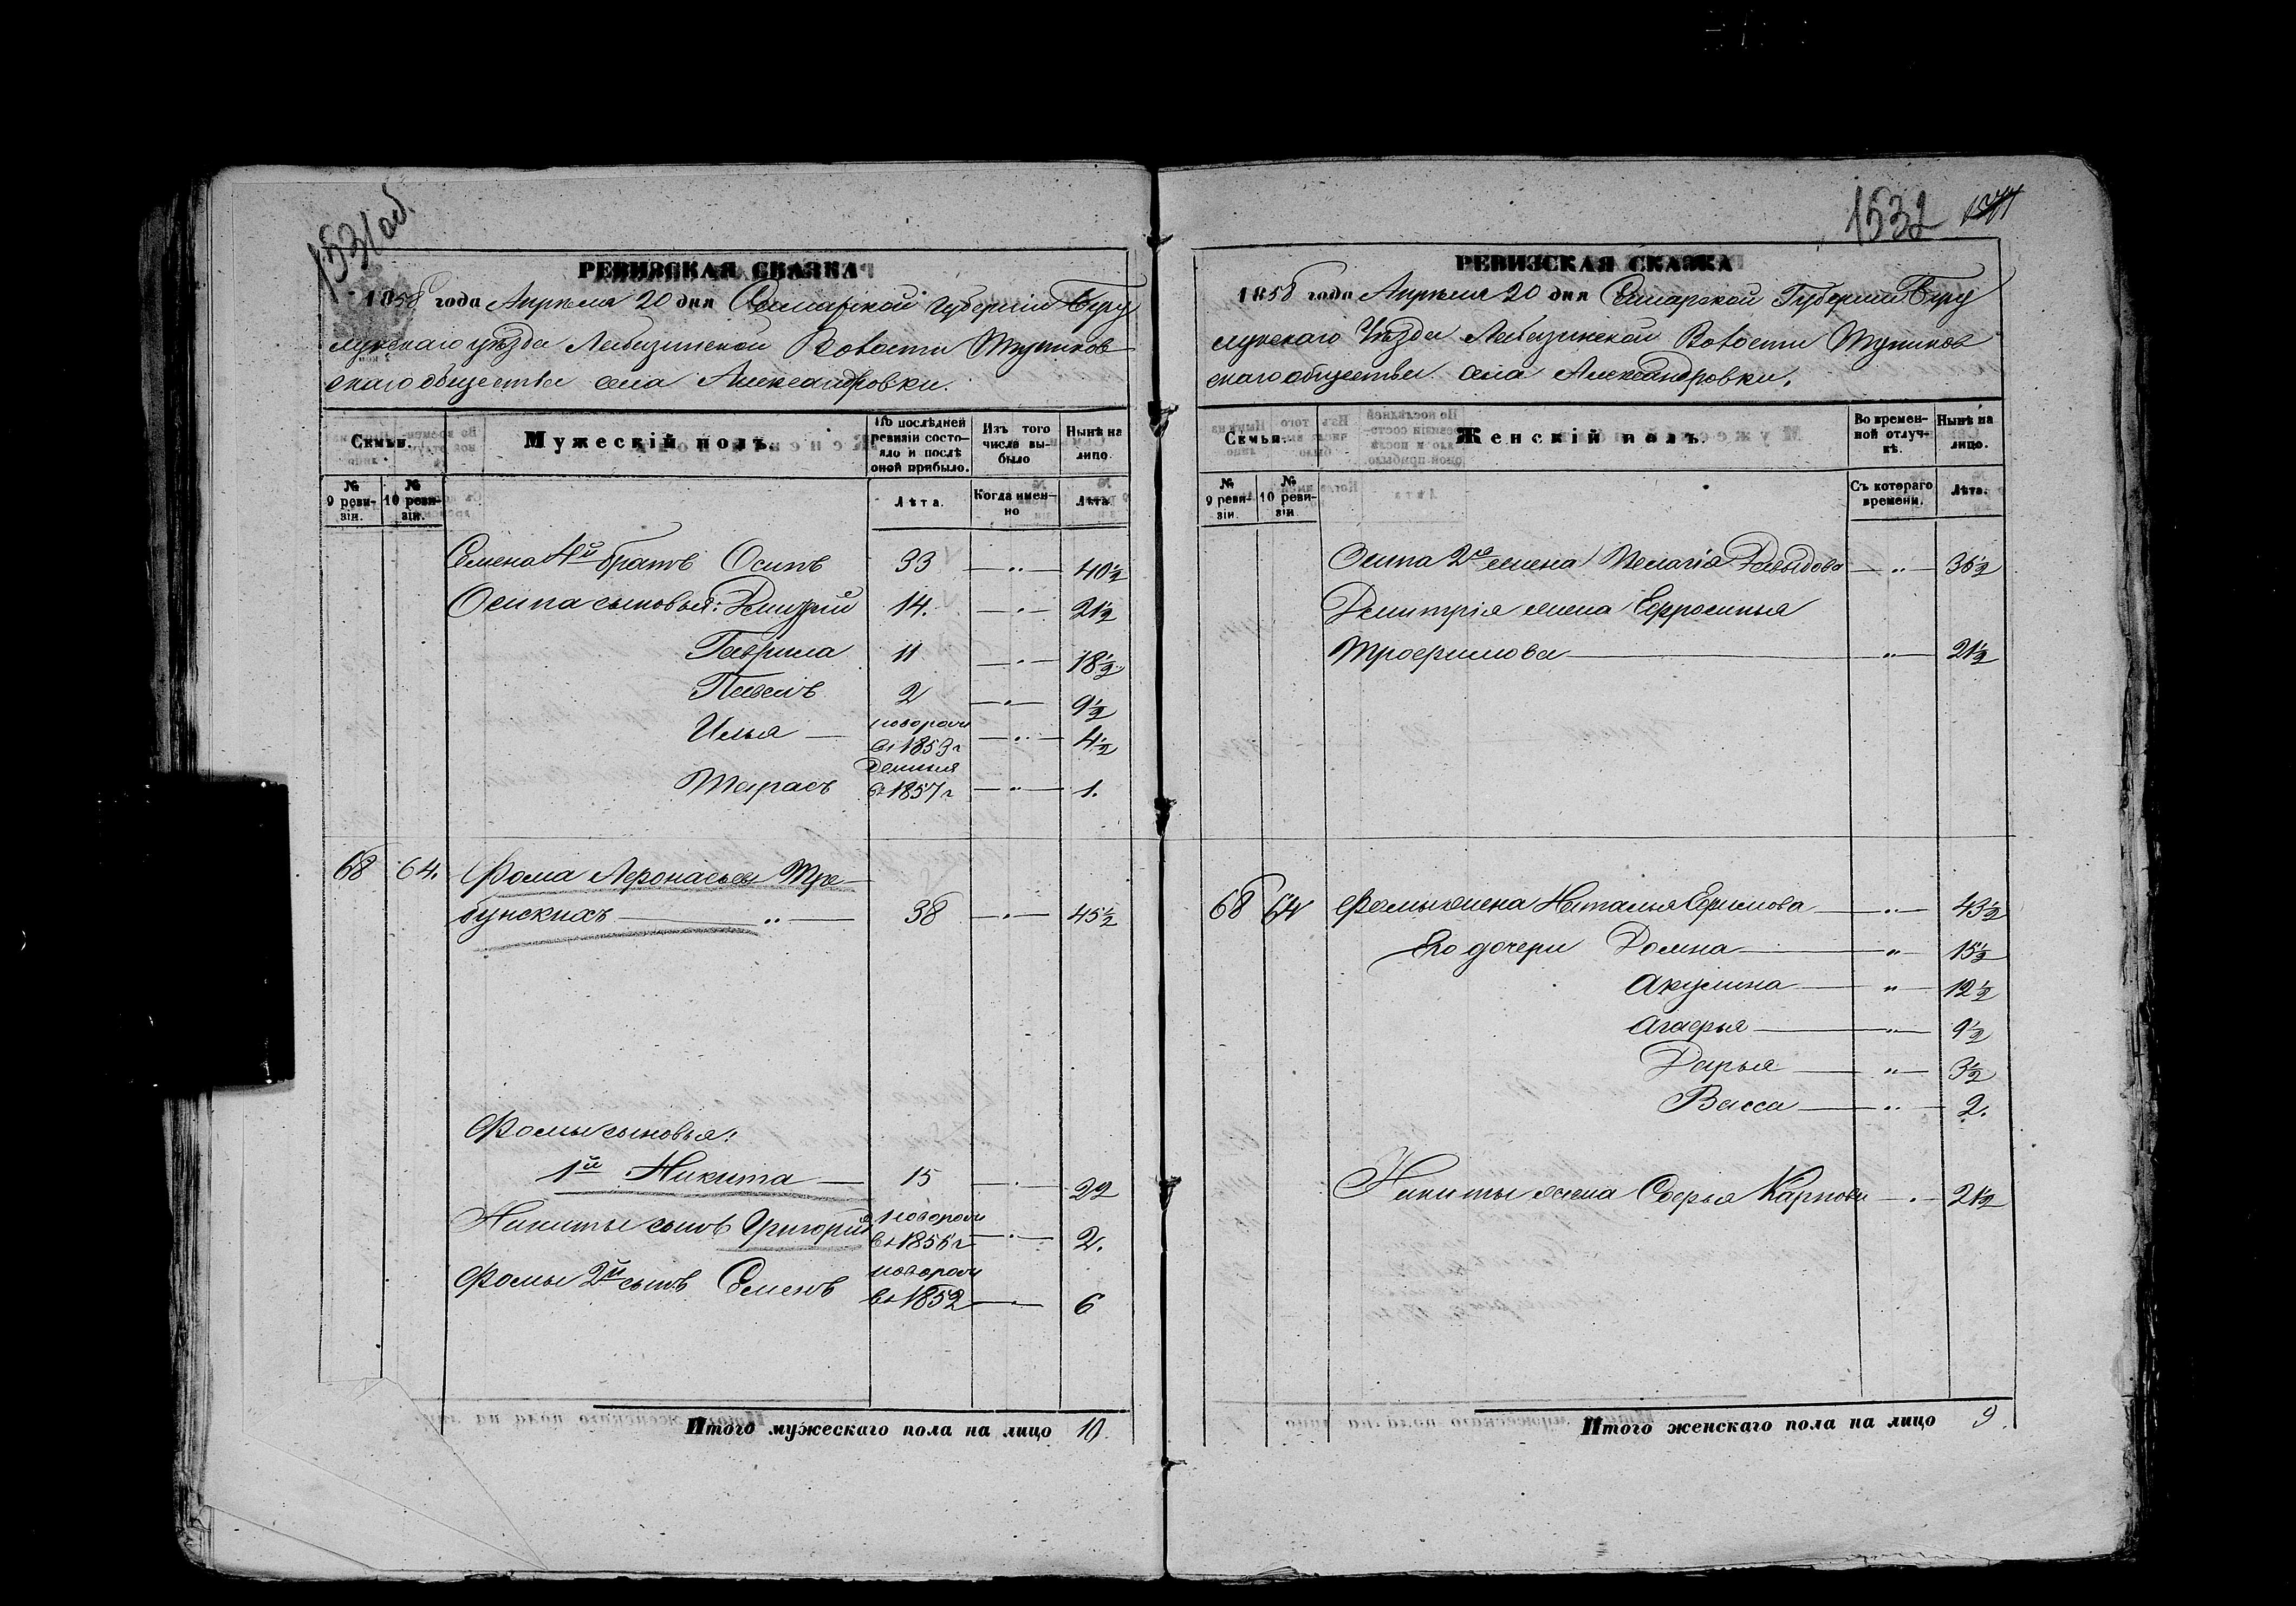 1531 об.
РЕВИЗСКАЯ СКАЗКА
1858 года Апреля 20 дня Самарской губернии Бузу
лукскаго уѣзда Лабазинской Волости Тупиков
скаго общества села Александровки.
Семьи.
Мужескій полъ.
По послѣдней ревизіи состояло и послѣ оной прибыло.
Изъ того числа выбыло
Нынѣ на лицо
№ 9 ревизіи.
№ 10 ревизіи.
Лѣта.
Когда именно
Лѣта.
Семена 4й братъ Осипъ 33 — „ — 40½
Осипа сыновья: Дмитрій 14. — „ — 21½
Гаврила 11 — „ — 18½
Павелъ 2 — „ — 9½
Илья — новорож въ 1853 г — „ — 4½
Тарасъ въ 1857 г — „ — 1.
68 64. Фома Афонасьев Тре-
бунскихъ — „ — 38 — „ — 45½
Фомы сыновья:
1й Никита — 15 — „ — 22
Никиты сынъ Григорий новорож въ 1856 г — „ — 2.
Фомы 2й сынъ Семенъ новорож въ 1852 — „ — 6
Итого мужескаго пола на лицо 10.
1532
РЕВИЗСКАЯ СКАЗКА
1858 года Апреля 20 дня Самарской Губернии Бузу
лукскаго Уѣзда Лабазинской Волости Тупиков
скаго общества села Александровки.
Семьи.
Женскій полъ.
Во временной отлучкѣ.
Нынѣ на лицо.
№ 9 ревизіи.
№ 10 ревизіи
Съ котораго времени.
Лѣта.
Осипа 2я жена Пелагія Давыдова — „ — 36½
Дмитрія жена Ефросинья
Трофимова — „ — 21½
68 64 Фомы жена Наталья Ефимова — „ — 43½
Его дочери Домна — „ — 15½
Акулина — „ — 12½
Агафья — „ — 9½
Дарья — „ — 3½
Васса — „ — 2.
Никиты жена Софья Карпова — „ — 21½
Итого женскаго пола на лицо 9